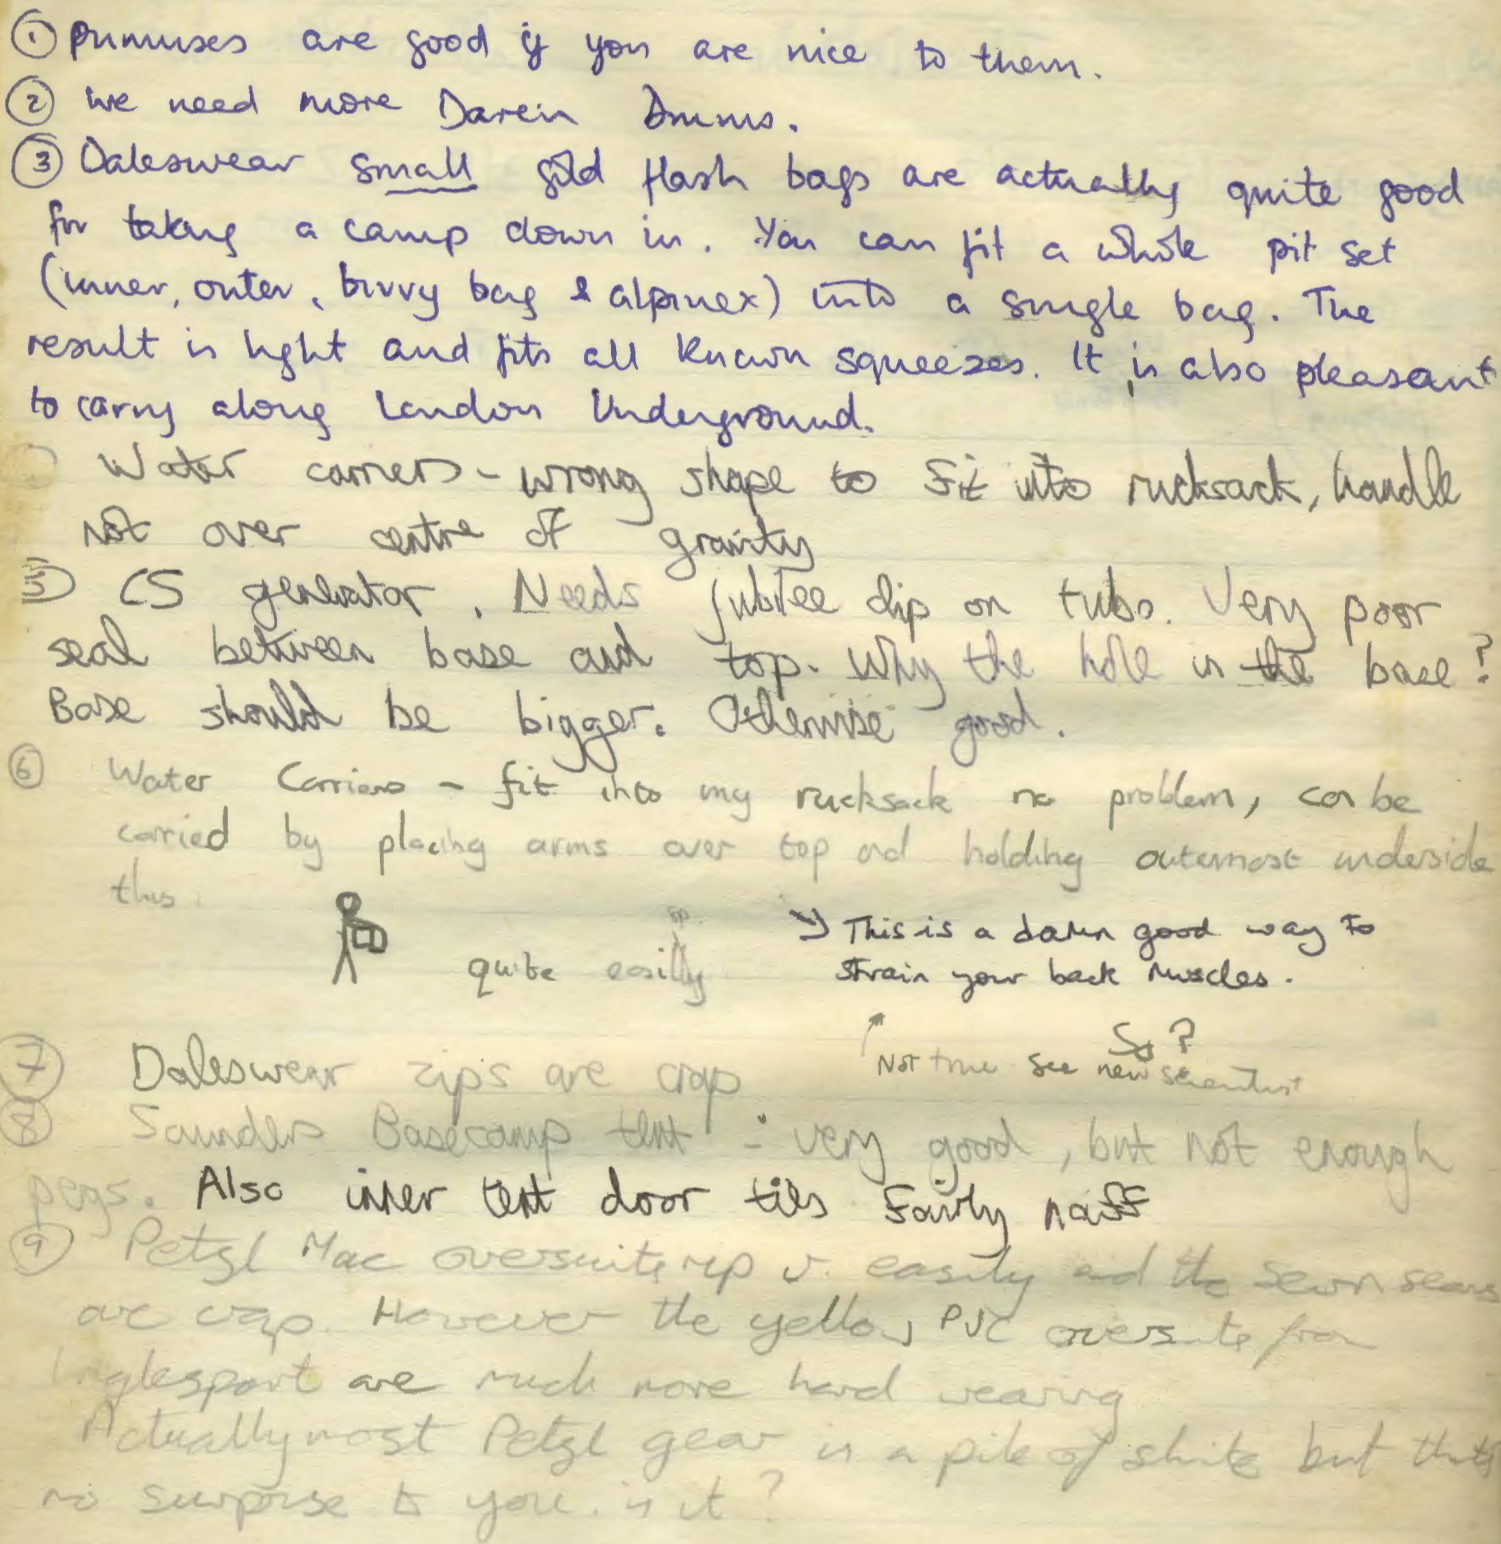 ① primuses are good if you are nice to them.
② We need more Daren Drums.
③ Daleswear small gold flash bags are actually quite good
for taking a camp down in. You can fit a whole pit set
(inner, outer, bivvy bag & alpinex) into a single bag. The
result is light and fits all known squeezes. It is also pleasant
to carry along London Underground.
Water carriers - wrong shape to fit into rucksack, handle
not over centre of gravity
5 CS generator. Needs jubilee clip on tubo. Very poor
seal between base and top. Why the hole in the base?
Base should be bigger. Otherwise good.
⑥ Water Carriers - fit into my rucksack no problem, can be
carried by placing arms over top and holding outermost underside
thus
sp.
quite easilly
→ This is a damn good way to
strain your back muscles.
So?
Not true see new scientist
⑦ Daleswear zips are crap
⑧ Saunders Basecamp tent : very good, but not enough
pegs. Also inner tent door ties fairly naff
⑨ Petzl Mac oversuits rip v. easily and the sewn seams
are crap. However the yellow PVC oversuits from
Inglesport are much more hard wearing
Actually most Petzl gear is a pile of shite but thats
no surprise to you is it?